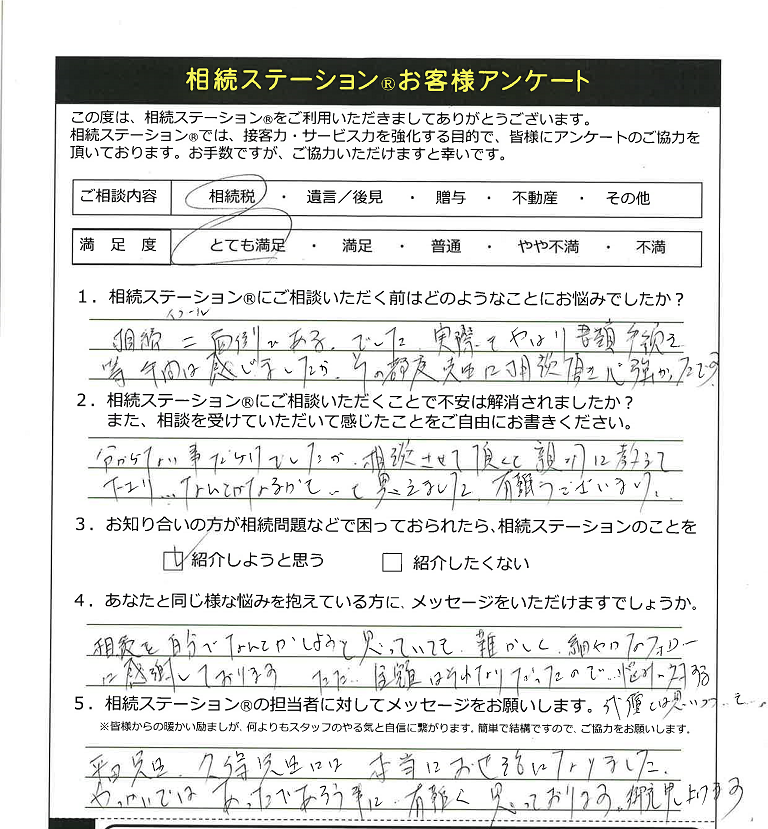 相続ステーション®お客様アンケート
この度は、相続ステーション®をご利用いただきましてありがとうございます。
相続ステーション®では、接客力・サービス力を強化する目的で、皆様にアンケートのご協力を
頂いております。お手数ですが、ご協力いただけますと幸いです。
ご相談内容 相続税 ・ 遺言／後見 ・ 贈与 ・ 不動産 ・ その他
満 足 度 とても満足 ・ 満足 ・ 普通 ・ やや不満 ・ 不満
1．相続ステーション®にご相談いただく前はどのようなことにお悩みでしたか？
イコール
相続 = 面倒である。でした 実際 やはり 書類 手続き
等 手間は感じましたが、その都度先生に相談頂き心強かったです
2．相続ステーション®にご相談いただくことで不安は解消されましたか？
また、相談を受けていただいて感じたことをご自由にお書きください。
分からない事だらけでしたが、相談させて頂くと親切に教えて
下さり… なんとかなるかも…と思えました。有難うございました。
3．お知り合いの方が相続問題などで困っておられたら、相続ステーションのことを
紹介しようと思う 紹介したくない
4．あなたと同じ様な悩みを抱えている方に、メッセージをいただけますでしょうか。
相続を自分でなんとかしようと思っていても、難かしく、細やかなフォロー
に感謝しております ただ、金額はそれなりだったので、悩みに対する
5．相続ステーション®の担当者に対してメッセージをお願いします。
代償とは思いつつも…。
※皆様からの暖かい励ましが、何よりもスタッフのやる気と自信に繋がります。簡単で結構ですので、ご協力をお願いします。
平田先生、久得先生には 本当にお世話になりました。
やっかいではあったであろう事に、有難く思っております。御礼申し上げます